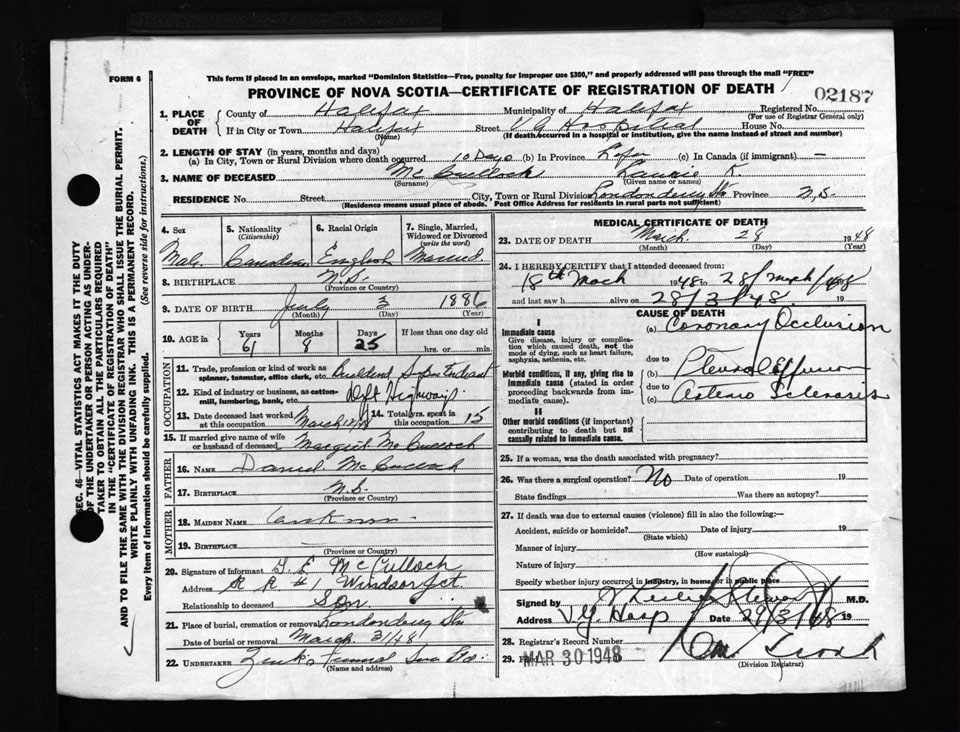 This form if placed in an envelope, marked "Dominion Statistics—Free, penalty for improper use $300," and properly addressed will pass through the mail "FREE"
FORM 6
PROVINCE OF NOVA SCOTIA—CERTIFICATE OF REGISTRATION OF DEATH
02187
1. PLACE OF DEATH
County of Halifax Municipality of Halifax Registered No.
(For use of Registrar General only)
If in City or Town Halifax Street V G Hospital House No.
(Name) (If death occurred in a hospital or institution, give the name instead of street and number)
2. LENGTH OF STAY (in years, months and days)
(a) In City, Town or Rural Division where death occurred 10 Days (b) In Province Life (c) In Canada (if immigrant) —
3. NAME OF DECEASED McCulloch Laurie K.
(Surname) (Given name or names)
RESIDENCE No. Street City, Town or Rural Division Londonderry Stn Province N.S.
(Residence means usual place of abode. Post Office Address for residents in rural parts not sufficient)
4. Sex
Male
5. Nationality (Citizenship)
Canadian
6. Racial Origin
English
7. Single, Married, Widowed or Divorced (write the word)
Married
8. BIRTHPLACE N.S.
(Province or Country)
9. DATE OF BIRTH July 3 1886
(Month) (Day) (Year)
10. AGE in Years Months Days If less than one day old
61 8 25 hrs. or min.
OCCUPATION
11. Trade, profession or kind of work as spinner, teamster, office clerk, etc.
12. Kind of industry or business, as cotton-mill, lumbering, bank, etc. Dpt Highways
13. Date deceased last worked at this occupation March 17/48 14. Total yrs. spent in this occupation 15
15. If married give name of wife or husband of deceased McCulloch
FATHER
16. NAME Daniel McCulloch
17. BIRTHPLACE N.S.
(Province or Country)
MOTHER
18. MAIDEN NAME
19. BIRTHPLACE
(Province or Country)
20. Signature of informant G. E. McCulloch
Address R R #1 Windsor Jct.
Relationship to deceased Son
21. Place of burial, cremation or removal Londonderry Stn
Date of burial or removal March 31/48
22. UNDERTAKER Zink's Funeral Ser Ltd.
(Name and address)
MEDICAL CERTIFICATE OF DEATH
23. DATE OF DEATH March 28 1948
(Month) (Day) (Year)
24. I HEREBY CERTIFY that I attended deceased from
18th March 1948 to 28/Mch/1948
and last saw h alive on 28/3/48. 19
CAUSE OF DEATH
I
Immediate cause
Give disease, injury or complication which caused death, not the mode of dying, such as heart failure, asphyxia, asthenia, etc.
(a) Coronary Occlusion
due to
Morbid conditions, if any, giving rise to immediate cause (stated in order proceeding backwards from immediate cause).
(b) Pleural Effusion
due to
(c) Arterio Sclerosis
II
Other morbid conditions (if important) contributing to death but not causally related to immediate cause.
25. If a woman, was the death associated with pregnancy?
26. Was there a surgical operation? No Date of operation 19
State findings Was there an autopsy?
27. If death was due to external causes (violence) fill in also the following:—
Accident, suicide or homicide? Date of injury 19
(State which)
Manner of injury
(How sustained)
Nature of injury
Specify whether injury occurred in industry, in home, or in public place
Signed by M.D.
Address V.G. Hosp Date 28/3/48 19
28. Registrar's Record Number
29. Filed
MAR 30 1948
(Division Registrar)
SEC. 46—VITAL STATISTICS ACT MAKES IT THE DUTY
OF THE UNDERTAKER OR PERSON ACTING AS UNDER-
TAKER TO OBTAIN ALL THE PARTICULARS REQUIRED
IN THE "CERTIFICATE OF REGISTRATION OF DEATH"
AND TO FILE THE SAME WITH THE DIVISION REGISTRAR WHO SHALL ISSUE THE BURIAL PERMIT.
WRITE PLAINLY WITH UNFADING INK. THIS IS A PERMANENT RECORD.
Every item of information should be carefully supplied. (See reverse side for instructions.)